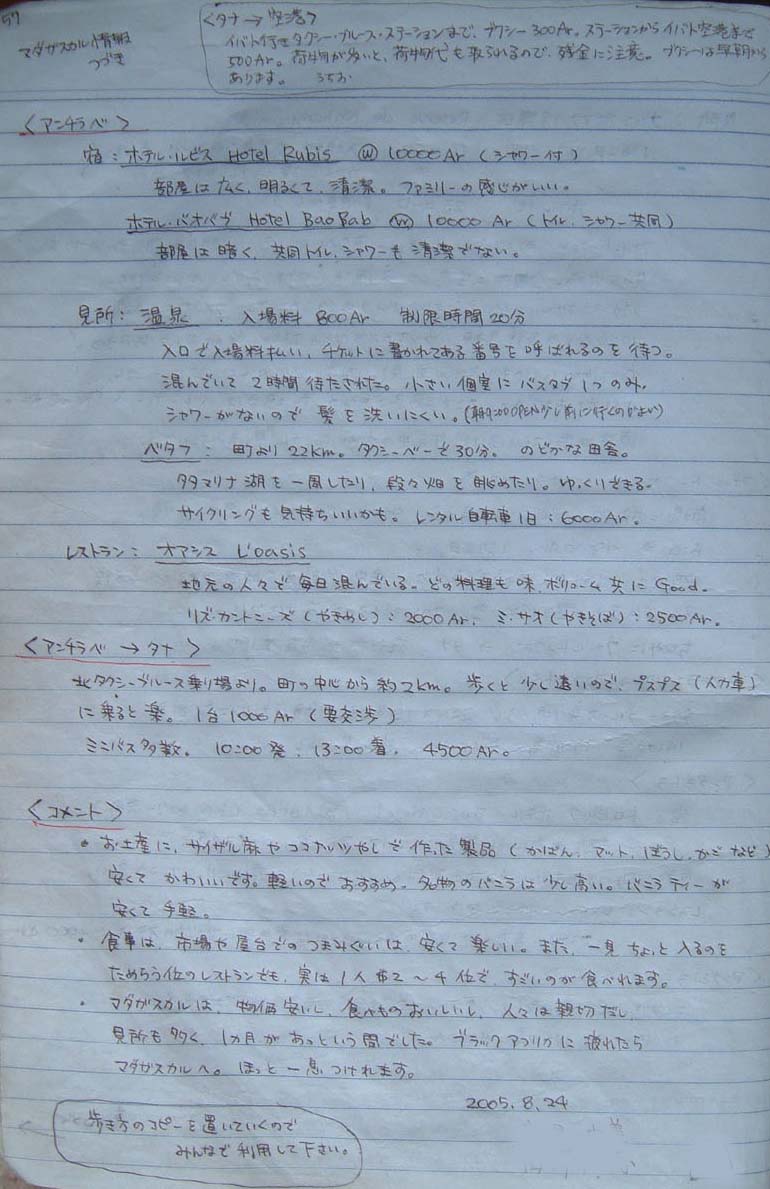 57
マダガスカル情報
つづき
<タナ → 空港>
イバト行きタクシー・ブルース・ステーションまで、ブクシー 300Ar。ステーションからイバト空港まで
500Ar。荷物が多いと、荷物代も取られるので、残金に注意。ブクシーは早朝から
あります。
<アンチラベ>
宿：ホテル・ルビス Hotel Rubis Ⓦ 10000Ar (シャワー付)
部屋は広く、明るくて、清潔。ファミリーの感じがいい。
ホテル・バオバブ Hotel BaoBab Ⓦ 10000 Ar (トイレ、シャワー共同)
部屋は暗く、共同トイレ、シャワーも清潔でない。
見所：温泉 : 入場料 800Ar 制限時間20分
入口で入場料払い、チケットに書かれてある番号を呼ばれるのを待つ。
混んでいて 2時間待たされた。小さい個室にバスタブ1つのみ。
シャワーがないので 髪を洗いにくい。(朝 OPEN少し前に行くのがよい)
ベタフ : 町より 22km。タクシーベーで30分。 のどかな田舎。
タタマリナ湖を一周したり、段々畑を眺めたり。ゆっくりできる。
サイクリングも気持ちいいかも。レンタル自転車1日：6000Ar。
レストラン：オアシス L'oasis
地元の人々で毎日混んでいる。どの料理も味、ボリューム共にGood。
リズ・カントニーズ (やきめし)：2000Ar、ミ・サオ (やきそば)：2500Ar。
<アンチラベ → タナ>
北タクシーブルース乗り場より。町の中心から約2km。歩くと少し遠いので、プスプス (人力車)
に乗ると楽。1台1000Ar (要交渉)
ミニバス多数。10:00発、13:00着。4500Ar。
<コメント>
• お土産に、サイザル麻やココナッツやしで作った製品 (かばん、マット、ぼうし、かごなど)
安くてかわいいです。軽いのでおすすめ。名物のバニラは少し高い。バニラティーが
安くて手軽。
• 食事は、市場や屋台でのつまみぐいは、安くて楽しい。また、一見ちょっと入るのを
ためらう位のレストランでも、実は1人 2～4位で、すごいのが食べれます。
• マダガスカルは、物価安いし、食べものおいしいし、人々は親切だし、
見所も多く、1カ月があっという間でした。ブラックアフリカに疲れたら
マダガスカルへ。ほっと一息つけれます。
2005.8.24
歩き方のコピーを置いていくので
みんなで利用して下さい。